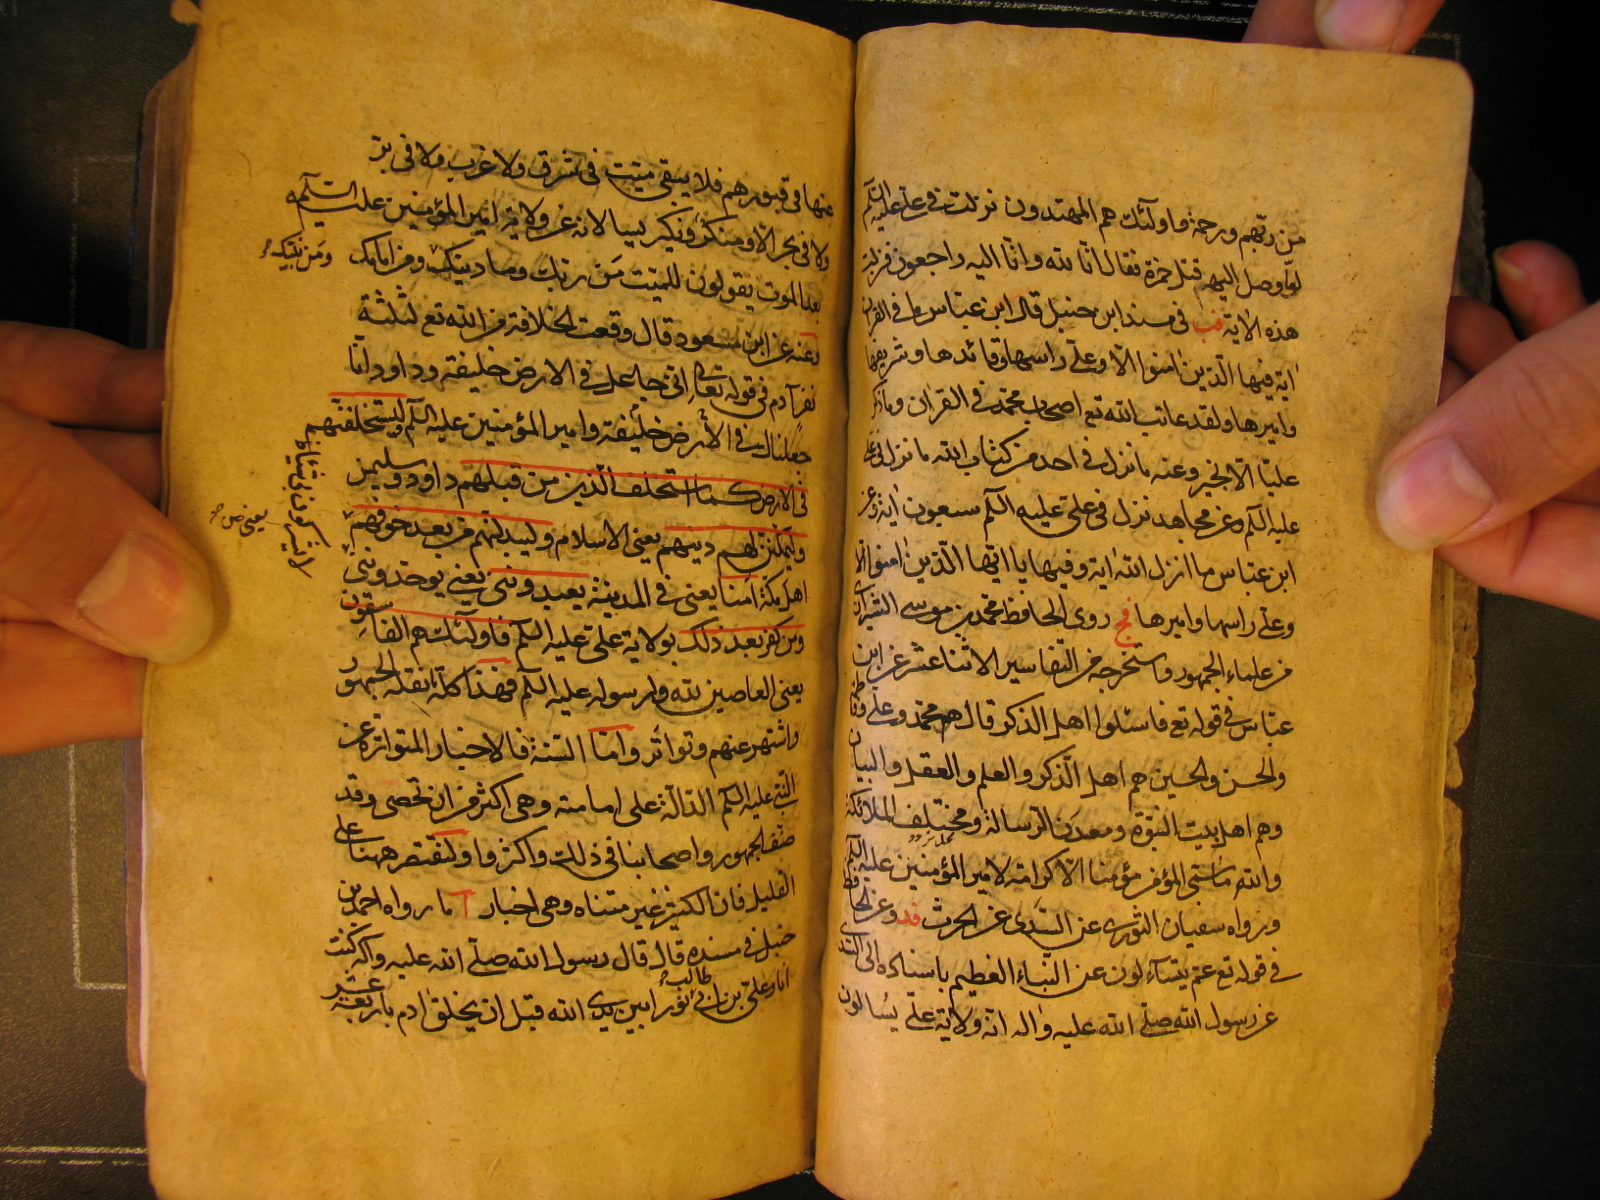 من ربهم ورحمة واولئك هم المهتدون نزلت في علي عليه السلم
لما وصل اليه قتل حمزة فقال انا لله وانا اليه راجعون فنزلت
هذه الاية فب في مسند ابن حنبل قال ابن عباس ما في القران
اية فيها الذين امنوا الا وعلي راسها وقائدها وشريفها
واميرها ولقد عاتب الله تع اصحاب محمد في القران وما ذكر
عليا الا بخير وعنه ما نزل في احد من كتاب الله ما نزل في علي
عليه السلم وعن مجاهد نزل في علي عليه السلم سبعون اية وعن
ابن عباس ما انزل الله اية وفيها يا ايها الذين امنوا الا
وعلي راسها واميرها فج روى الحافظ محمد بن موسى الشيرازي
من علماء الجمهور واستخرجه من التفاسير الاثنا عشر عن ابن
عباس في قوله تع فاسئلوا اهل الذكر قال هم محمد وعلي وفاطمة
والحسن والحسين هم اهل الذكر والعلم والعقل والبيان
وهم اهل بيت النبوة ومعدن الرسالة ومختلف الملائكة
والله ما سمي المؤمن مؤمنا الا كرامة لامير المؤمنين عليه السلم
ورواه سفيان الثوري عن السدي عن الحرث قد وعن الحافظ
في قوله تع عم يتساءلون عن النباء العظيم باسناده الى السدي
عن رسول الله صلى الله عليه واله انه ولاية علي يسالون
عنها في قبورهم فلا يبقى ميت في شرق ولا غرب ولا في بر
ولا في بحر الا ومنكر ونكير يسالانه عن ولاية امير المؤمنين عليه السلم
بعد الموت يقولون للميت من ربك وما دينك ومن امامك
ومن نبيك
وعنه عن ابن مسعود قال وقعت الخلافة من الله تع لثلثة
نفر آدم في قوله تعالى اني جاعل في الارض خليفة وداود انا
جعلناك في الارض خليفة وامير المؤمنين عليه السلم ليستخلفنهم
في الارض كما استخلف الذين من قبلهم داود وسليمن
وليمكنن لهم دينهم يعني الاسلام وليبدلنهم من بعد خوفهم
اهل مكة امنا يعني في المدينة يعبدونني يعني يوحدونني
لا يشركون بي شيئا
يعني
ومن كفر بعد ذلك بولاية علي عليه السلم فاولئك هم الفاسقون
يعني العاصين لله ولرسوله عليه السلم فهذا كله نقله الجمهور
واشتهر عنهم وتواتر واما السنة فالاخبار المتواترة عن
النبي عليه السلم الدالة على امامته وهي اكثر من ان تحصى وقد
صنف الجمهور واصحابنا في ذلك واكثروا ولنقتصر ههنا على
القليل فان الكثير غير متناه وهي اخبار آ ما رواه احمد بن
حنبل في مسنده قال قال رسول الله صلى الله عليه واله كنت
انا وعلي بن ابي طالب نورا بين يدي الله قبل ان يخلق ادم باربعة عشر